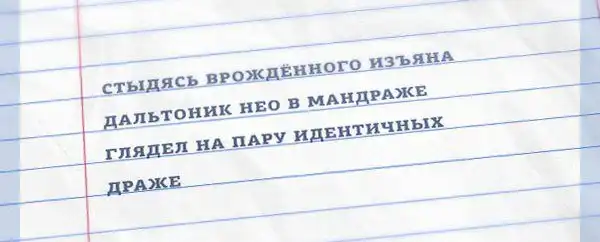 СТЫДЯСЬ ВРОЖДЁННОГО ИЗЪЯНА
ДАЛЬТОНИК НЕО В МАНДРАЖЕ
ГЛЯДЕЛ НА ПАРУ ИДЕНТИЧНЫХ
ДРАЖЕ